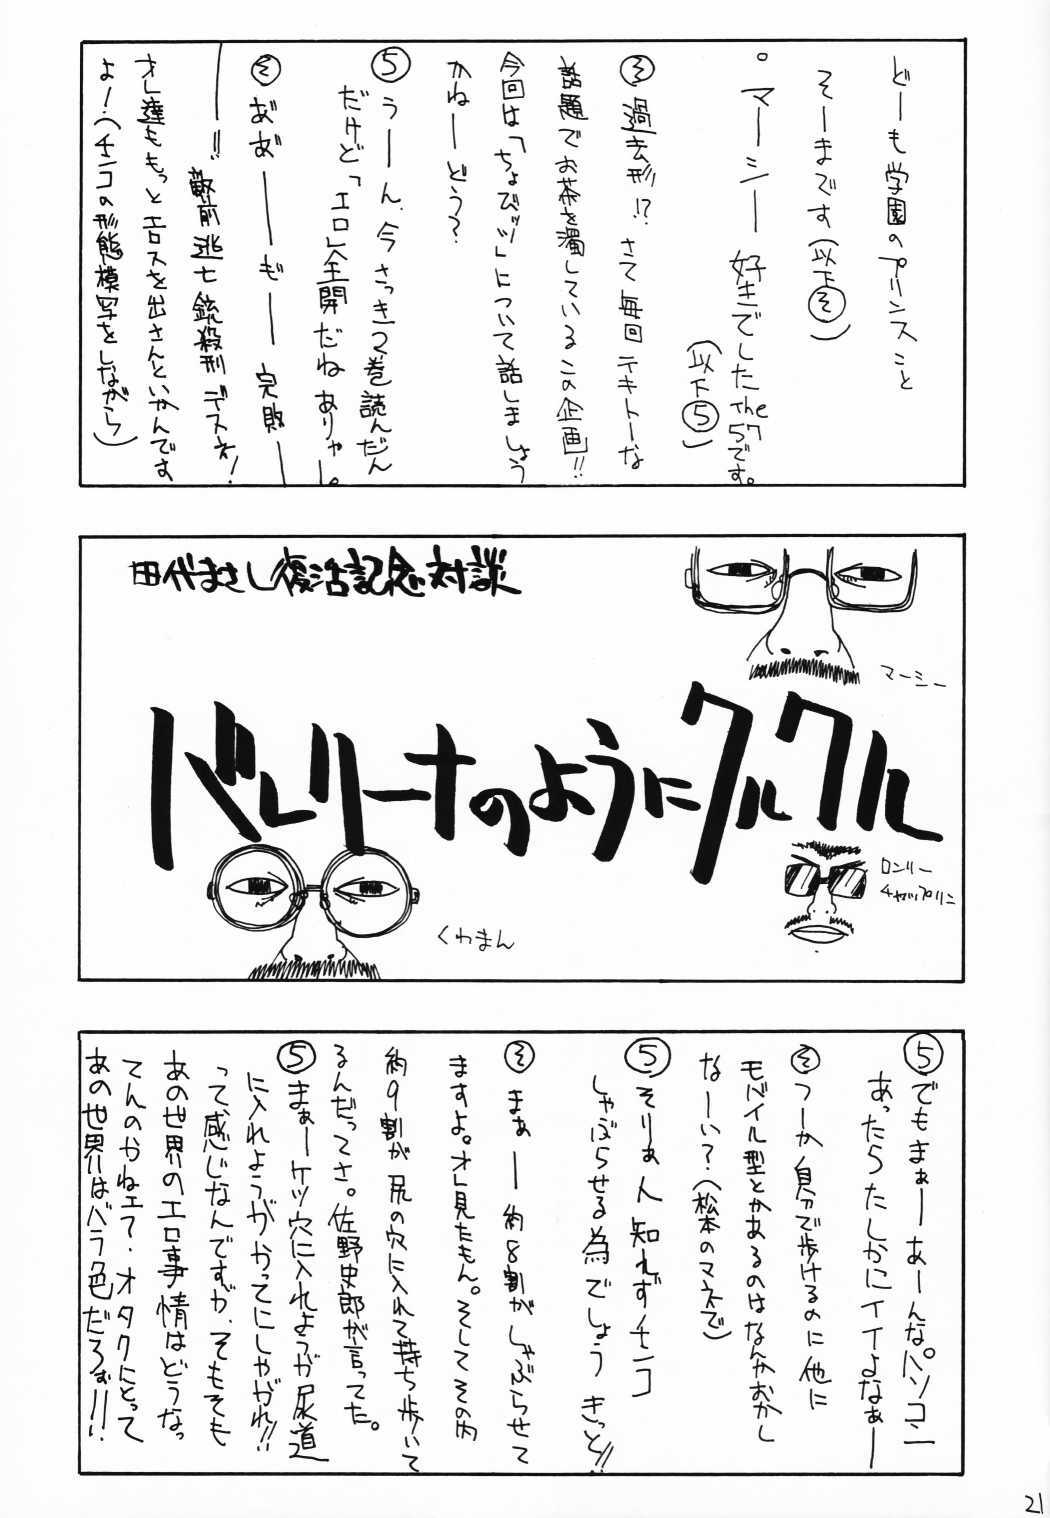 どーも学園のプリンスこと
そーまです(以下そ)
。マーシー好きでしたThe57です。
(以下5)
そ 過去形!?さて毎回テキトーな
話題でお茶を濁しているこの企画!!
今回は「ちょびッツ」について話しましょう
かねーどう?
5 うーん、今さっき2巻読んだん
だけど「エロ」全開だねありゃー。
そ あ゛あ゛ーーぎーー完敗ー
ー!!敵前逃亡銃殺刑デスネ!
オレ達ももっとエロスを出さんといかんです
よ!(チンコの形態模写をしながら)
田代まさし復活記念対談
マーシー
バレリーナのようにクルクル
ロンリー
チャップリン
くわまん
5 でもまぁーあーんなパソコン
あったらたしかにイイよなぁー
そ つーか自分で歩けるのに他に
モバイル型とかあるのはなんかおかし
なーい?(松本のマネで)
5 そりゃ人知れずチンコ
しゃぶらせる為でしょうきっと!!
そ まぁー約8割がしゃぶらせて
ますよ。オレ見たもん。そしてその内
約9割が尻の穴に入れて持ち歩いて
るんだってさ。佐野史郎が言ってた。
5 まぁーケツ穴に入れようが尿道
に入れようがかってにしやがれ!!
って感じなんですが、そもそも
あの世界のエロ事情はどうなっ
てんのかねェ?・オタクにとって
あの世界はバラ色だろぉ!!!
21